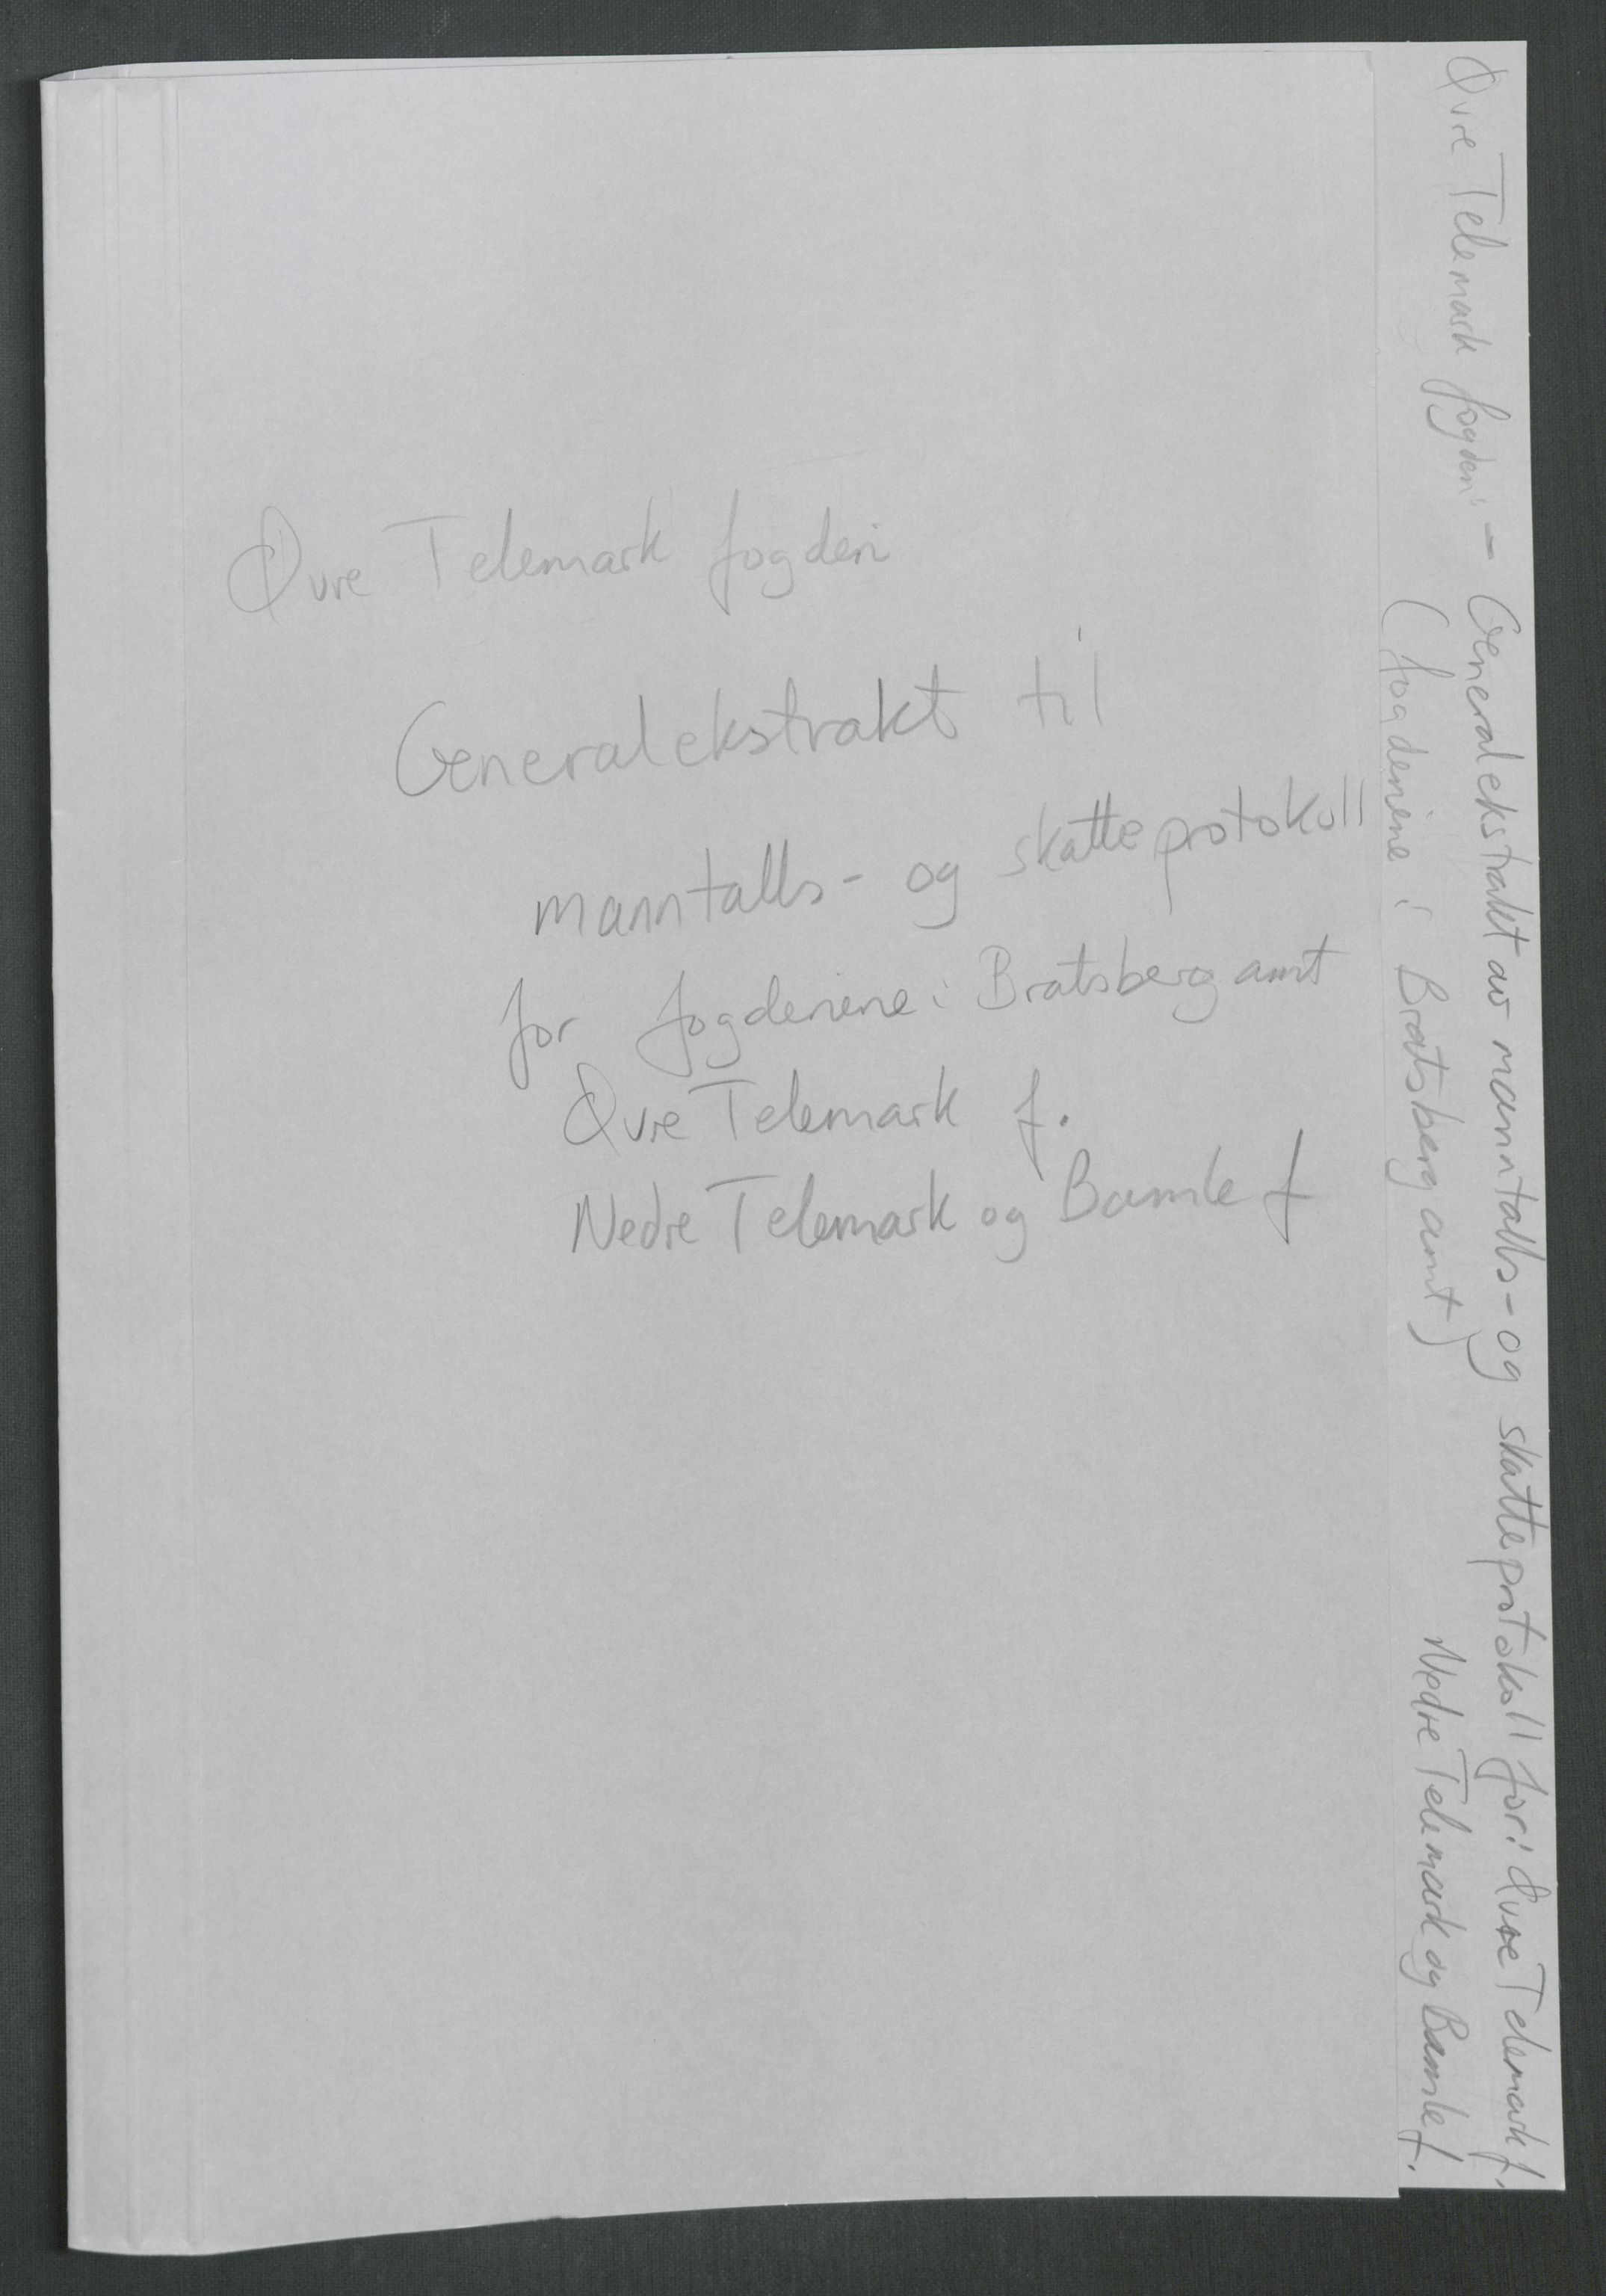 Øvre Telemark fogderi
Generalekstrakt til
manntalls- og skatteprotokoll
for fogderiene i Bratsberg amt
Øvre Telemark f.
Nedre Telemark og Bamle f
Øvre Telemark fogderi - Generalekstrakt av manntalls- og skatteprotokoll for: Øvre Telemark f.
(fogderiene i Bratsberg amt) Nedre Telemark og Bamle f.